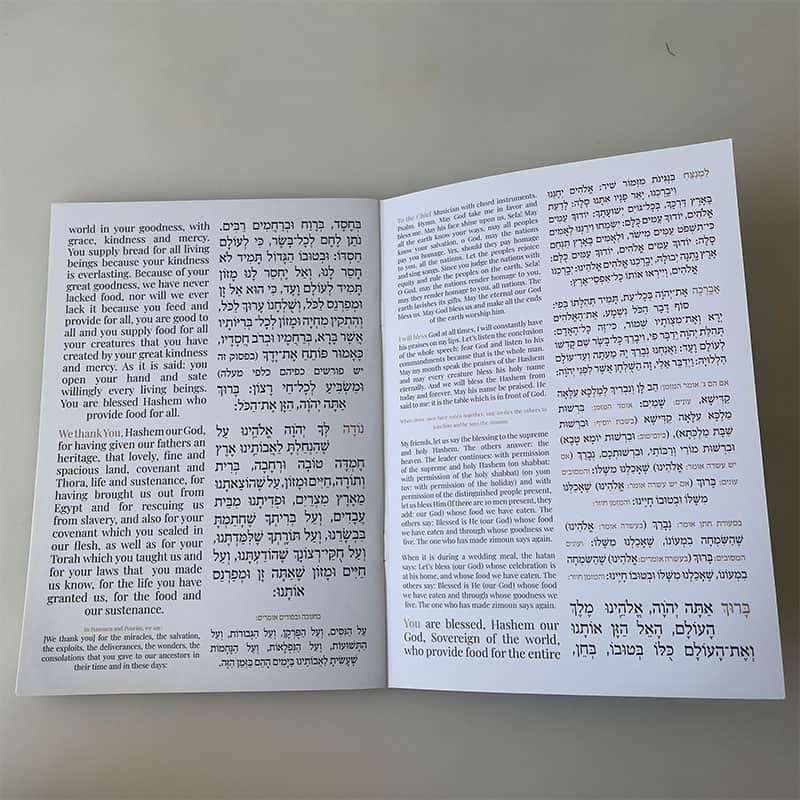 לַמְנַצֵּחַ בִּנְגִינֹת מִזְמוֹר שִׁיר: אֱלֹהִים יְחָנֵּנוּ
וִיבָרְכֵנוּ, יָאֵר פָּנָיו אִתָּנוּ סֶלָה: לָדַעַת
בָּאָרֶץ דַּרְכֶּךָ, בְּכָל־גּוֹיִם יְשׁוּעָתֶךָ: יוֹדוּךָ עַמִּים
אֱלֹהִים, יוֹדוּךָ עַמִּים כֻּלָּם: יִשְׂמְחוּ וִירַנְּנוּ לְאֻמִּים
כִּי־תִשְׁפֹּט עַמִּים מִישֹׁר, וּלְאֻמִּים בָּאָרֶץ תַּנְחֵם
סֶלָה: יוֹדוּךָ עַמִּים אֱלֹהִים, יוֹדוּךָ עַמִּים כֻּלָּם:
אֶרֶץ נָתְנָה יְבוּלָהּ, יְבָרְכֵנוּ אֱלֹהִים אֱלֹהֵינוּ: יְבָרְכֵנוּ
אֱלֹהִים, וְיִירְאוּ אוֹתוֹ כָּל־אַפְסֵי־אָרֶץ:
אֲבָרְכָה אֶת־יְהוָה בְּכָל־עֵת, תָּמִיד תְּהִלָּתוֹ בְּפִי:
סוֹף דָּבָר הַכֹּל נִשְׁמָע, אֶת־הָאֱלֹהִים
יְרָא וְאֶת־מִצְוֹתָיו שְׁמוֹר, כִּי־זֶה כָּל־הָאָדָם:
תְּהִלַּת יְהוָה יְדַבֶּר פִּי, וִיבָרֵךְ כָּל־בָּשָׂר שֵׁם קָדְשׁוֹ
לְעוֹלָם וָעֶד: וַאֲנַחְנוּ נְבָרֵךְ יָהּ מֵעַתָּה וְעַד־עוֹלָם
הַלְלוּיָהּ: וַיְדַבֵּר אֵלַי, זֶה הַשֻּׁלְחָן אֲשֶׁר לִפְנֵי יְהוָה:
אם הם ג' אומר המזמן: הַב לָן וְנִבְרִיךְ לְמַלְכָּא עִלָּאָה
קַדִּישָׁא. עונים: שָׁמַיִם: אומר המזמן: בִּרְשׁוּת
מַלְכָּא עִלָּאָה קַדִּישָׁא (בשבת יוסיף: וּבִרְשׁוּת
שַׁבָּת מַלְכְּתָא), (ביום־טוב: וּבִרְשׁוּת יוֹמָא טָבָא)
וּבִרְשׁוּת מוֹרַי וְרַבּוֹתַי, וּבִרְשׁוּתְכֶם, נְבָרֵךְ (אם
יש עשרה אומר: אֱלֹהֵינוּ) שֶׁאָכַלְנוּ מִשֶּׁלּוֹ: והמסובים
עונים: בָּרוּךְ (אם יש עשרה אומר: אֱלֹהֵינוּ) שֶׁאָכַלְנוּ
מִשֶּׁלּוֹ וּבְטוּבוֹ חָיִינוּ: והמזמן חוזר:
בסעודת חתן אומר: נְבָרֵךְ (בעשרה אומר: אֱלֹהֵינוּ)
שֶׁהַשִּׂמְחָה בִמְעוֹנוֹ, שֶׁאָכַלְנוּ מִשֶּׁלּוֹ: עונים
המסובים: בָּרוּךְ (בעשרה אומר: אֱלֹהֵינוּ) שֶׁהַשִּׂמְחָה
בִמְעוֹנוֹ, שֶׁאָכַלְנוּ מִשֶּׁלּוֹ וּבְטוּבוֹ חָיִינוּ: והמזמן חוזר:
בָּרוּךְ אַתָּה יְהוָה, אֱלֹהֵינוּ מֶלֶךְ
הָעוֹלָם, הָאֵל הַזָּן אוֹתָנוּ
וְאֶת־הָעוֹלָם כֻּלּוֹ בְּטוּבוֹ, בְּחֵן,
To the Chief Musician with chord instruments.
Psalm. Hymn. May God take me in favor and
bless me. May his face shine upon us, Sela! May
all the earth know your ways, may all peoples
know your salvation, o God, may the nations
pay you homage. Yes, should they pay homage
to you, all the nations. Let the peoples rejoice
and sing songs. Since you judge the nations with
equity and rule the peoples on the earth, Sela!
O God, may the nations render homage to you,
may they render homage to you, all nations. The
earth lavishes its gifts. May the eternal our God
bless us. May God bless us and make all the ends
of the earth worship him.
I will bless God at all times, I will constantly have
his praises on my lips. Let's listen the conclusion
of the whole speech: fear God and listen to his
commandments because that is the whole man.
May my mouth speak the praises of the Hashem
and may every creature bless his holy name
eternally. And we will bless the Hashem from
today and forever. May his name be praised. He
said to me: it is the table which is in front of God.
When three men have eaten together, one invites the others to
join him and he says the zimoun
My friends, let us say the blessing to the supreme
and holy Hashem. The others answer: the
heaven. The leader continues: with permission
of the supreme and holy Hashem (on shabbat:
with permission of the holy shabbat) (on yom
tov: with permission of the holiday) and with
permission of the distinguished people present,
let us bless Him (If there are 10 men present, they
add: our God) whose food we have eaten. The
others say: Blessed is He (our God) whose food
we have eaten and through whose goodness we
live. The one who has made zimoun says again.
When it is during a wedding meal, the hatan
says: Let's bless (our God) whose celebration is
at his home, and whose food we have eaten. The
others say: Blessed is He (our God) whose food
we have eaten and through whose goodness we
live. The one who has made zimoun says again.
You are blessed, Hashem our
God, Sovereign of the world,
who provide food for the entire
בְּחֶסֶד, בְּרֶוַח וּבְרַחֲמִים רַבִּים.
נֹתֵן לֶחֶם לְכָל־בָּשָׂר, כִּי לְעוֹלָם
חַסְדּוֹ: וּבְטוּבוֹ הַגָּדוֹל תָּמִיד לֹא
חָסַר לָנוּ, וְאַל יֶחְסַר לָנוּ מָזוֹן
תָּמִיד לְעוֹלָם וָעֶד, כִּי הוּא אֵל זָן
וּמְפַרְנֵס לַכֹּל, וְשֻׁלְחָנוֹ עָרוּךְ לַכֹּל,
וְהִתְקִין מִחְיָה וּמָזוֹן לְכָל־בְּרִיּוֹתָיו
אֲשֶׁר בָּרָא, בְּרַחֲמָיו וּבְרֹב חֲסָדָיו,
כָּאָמוּר פּוֹתֵחַ אֶת־יָדֶךָ (בפסוק זה
יש פורשים כפיהם כלפי מעלה)
וּמַשְׂבִּיעַ לְכָל־חַי רָצוֹן: בָּרוּךְ
אַתָּה יְהוָה, הַזָּן אֶת־הַכֹּל:
נוֹדֶה לְּךָ יְהוָה אֱלֹהֵינוּ עַל
שֶׁהִנְחַלְתָּ לַאֲבוֹתֵינוּ אֶרֶץ
חֶמְדָּה טוֹבָה וּרְחָבָה, בְּרִית
וְתוֹרָה, חַיִּים וּמָזוֹן, עַל שֶׁהוֹצֵאתָנוּ
מֵאֶרֶץ מִצְרַיִם, וּפְדִיתָנוּ מִבֵּית
עֲבָדִים, וְעַל בְּרִיתְךָ שֶׁחָתַמְתָּ
בִּבְשָׂרֵנוּ, וְעַל תּוֹרָתְךָ שֶׁלִּמַּדְתָּנוּ,
וְעַל חֻקֵּי רְצוֹנָךְ שֶׁהוֹדַעְתָּנוּ, וְעַל
חַיִּים וּמָזוֹן שֶׁאַתָּה זָן וּמְפַרְנֵס
אוֹתָנוּ:
בחנוכה ובפורים אומרים:
עַל הַנִּסִּים, וְעַל הַפֻּרְקָן, וְעַל הַגְּבוּרוֹת, וְעַל
הַתְּשׁוּעוֹת, וְעַל הַנִּפְלָאוֹת, וְעַל הַנֶּחָמוֹת
שֶׁעָשִׂיתָ לַאֲבוֹתֵינוּ בַּיָּמִים הָהֵם בַּזְּמַן הַזֶּה.
world in your goodness, with
grace, kindness and mercy.
You supply bread for all living
beings because your kindness
is everlasting. Because of your
great goodness, we have never
lacked food, nor will we ever
lack it because you feed and
provide for all, you are good to
all and you supply food for all
your creatures that you have
created by your great kindness
and mercy. As it is said: you
open your hand and sate
willingly every living beings.
You are blessed Hashem who
provide food for all.
We thank You, Hashem our God,
for having given our fathers an
heritage, that lovely, fine and
spacious land, covenant and
Thora, life and sustenance, for
having brought us out from
Egypt and for rescuing us
from slavery, and also for your
covenant which you sealed in
our flesh, as well as for your
Torah which you taught us and
for your laws that you made
us know, for the life you have
granted us, for the food and
our sustenance.
In Hanouca and Pourim, we say:
[We thank you] for the miracles, the salvation,
the exploits, the deliverances, the wonders, the
consolations that you gave to our ancestors in
their time and in these days: